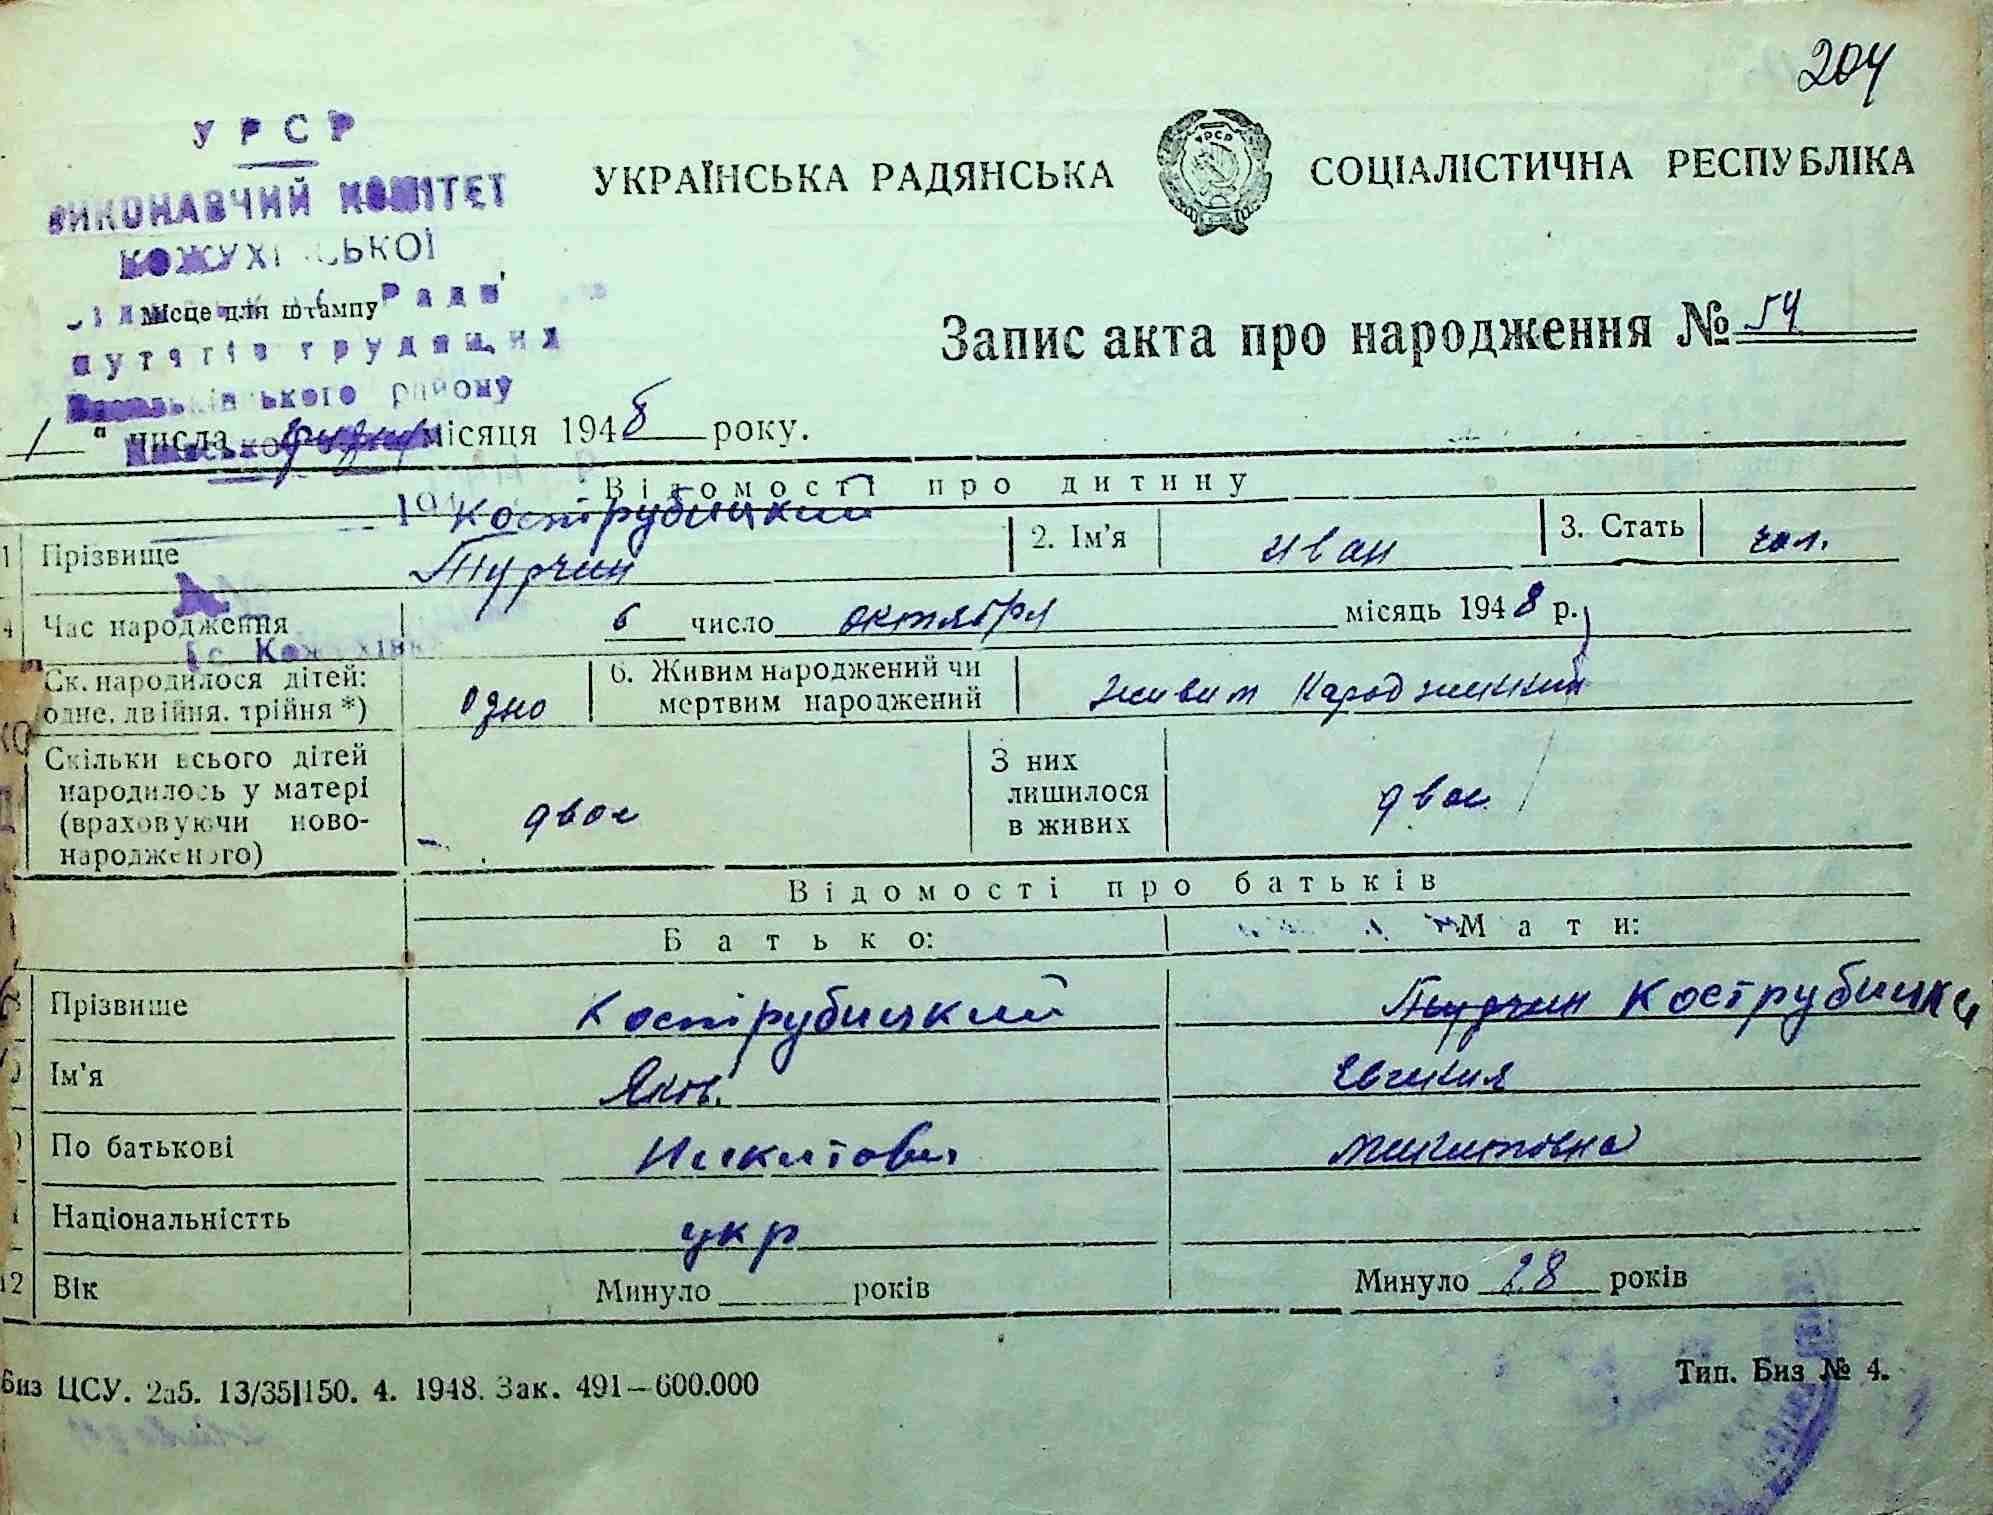 204
УРСР
ВИКОНАВЧИЙ КОМІТЕТ
КОЖУХІ СЬКОЇ
УКРАЇНСЬКА РАДЯНСЬКА СОЦІАЛІСТИЧНА РЕСПУБЛІКА
Місце для штампу
Запис акта про народження № 54
путатів трудящих
району
1 " числа місяця 1948 року.
Відомості про дитину
Кострубицкий
1 Прізвище Турчин 2. Ім'я Иван 3. Стать чол.
4 Час народження 6 число октября місяць 1948 р.
с. Кожухівка
Ск. народилося дітей: одно 6. Живим народжений чи живим народжиний
одне, двійня, трійня *) мертвим народжений
Скільки всього дітей З них
народилось у матері двое лишилося двое
(враховуючи ново- в живих
народженого)
Відомості про батьків
Батько: Мати:
Прізвище Кострубицкий Турчин Кострубицка
Ім'я Яков. Евгения
По батькові Никитович
Національністть укр
12 Вік Минуло років Минуло 28 років
Биз ЦСУ. 2а5. 13/35|150. 4. 1948. Зак. 491—600.000 Тип. Биз № 4.